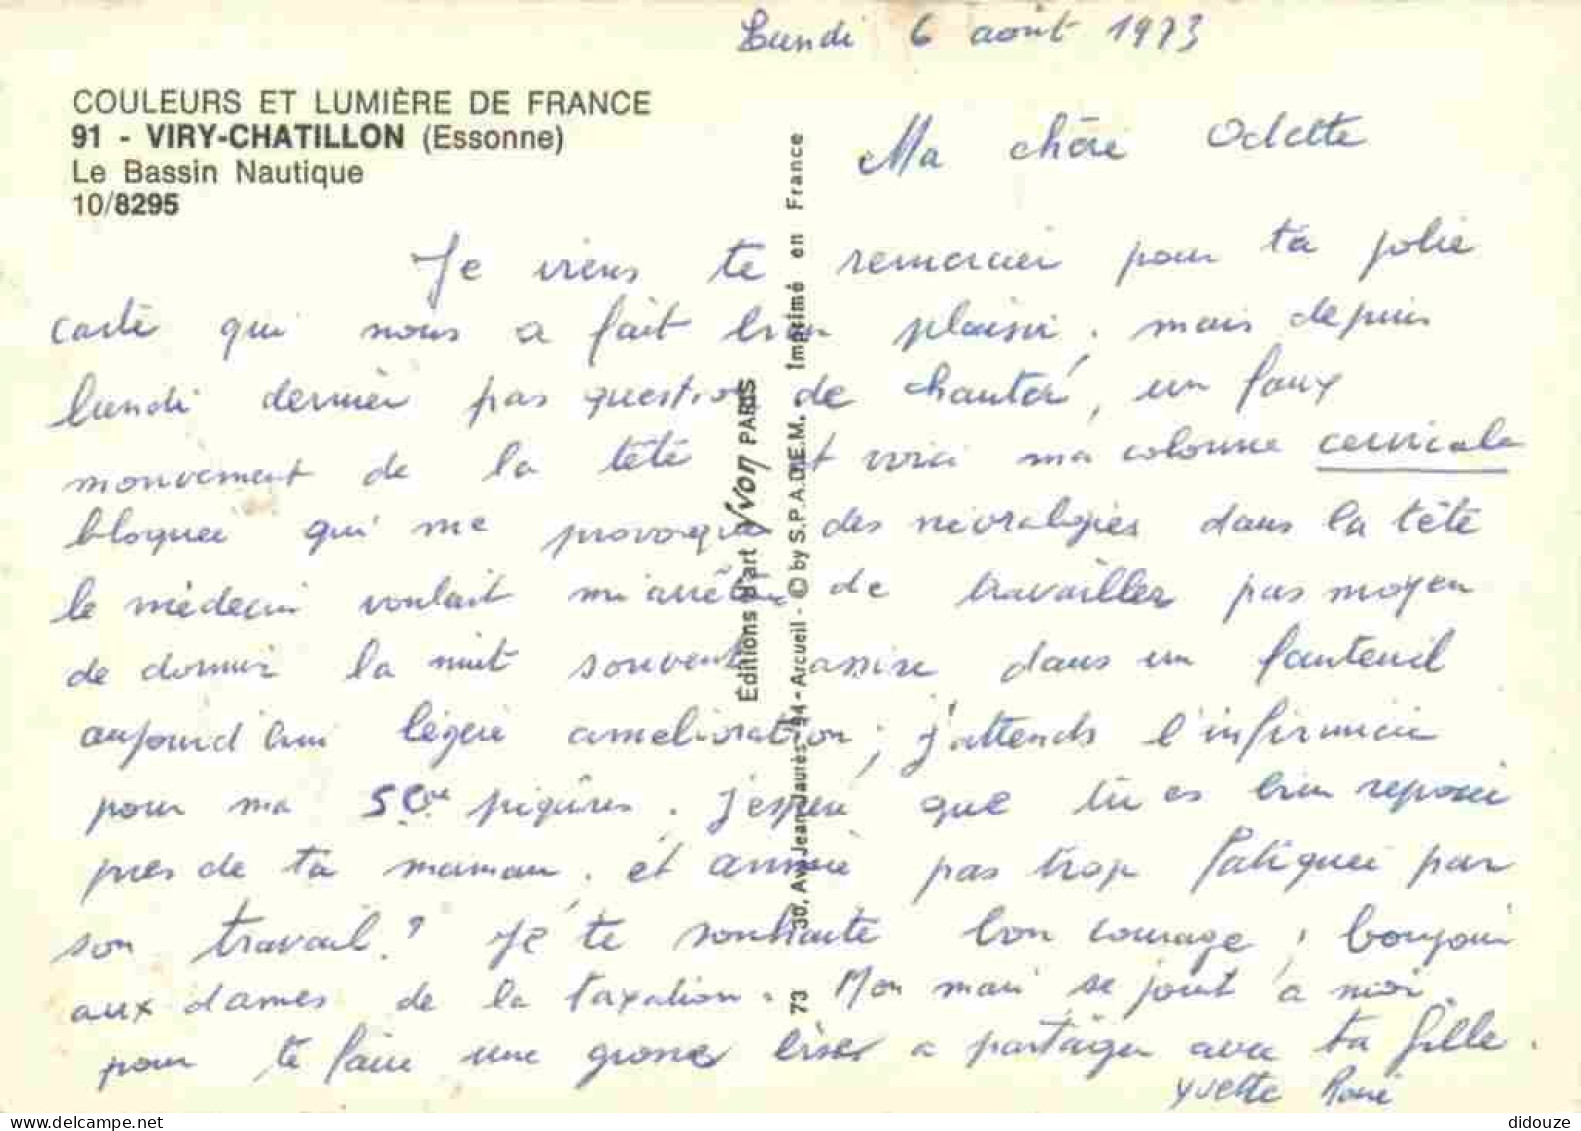 Lundi 6 août 1973
COULEURS ET LUMIÈRE DE FRANCE
91 - VIRY-CHATILLON (Essonne)
Le Bassin Nautique
10/8295
Ma chère Odette
Je viens te remercier pour ta jolie
carte qui nous a fait bien plaisir. mais depuis
lundi dernier pas question de chanter, un faux
mouvement de la tête et voici ma colonne cervicale
bloquée qui me provoque des névralgies dans la tête
le médecin voulait m'arrêter de travailler pas moyen
de dormir la nuit souvent assise dans un fauteuil
aujourd'hui légère amélioration ; j'attends l'infirmière
pour ma 5e piqûres. J'espère que tu es bien reposée
près de ta maman. et Annie pas trop fatiguée par
son travail ? Je te souhaite bon courage ; bonjour
aux dames de la taxation. Mon mari se joint à moi
pour te faire une grosses bises a partager avec ta fille.
Yvette René
Éditions d'art Yvon PARIS
73 30, Av. Jean-Jaurès - 94 - Arcueil - © by S.P.A.D.E.M. - Imprimé en France
didouze